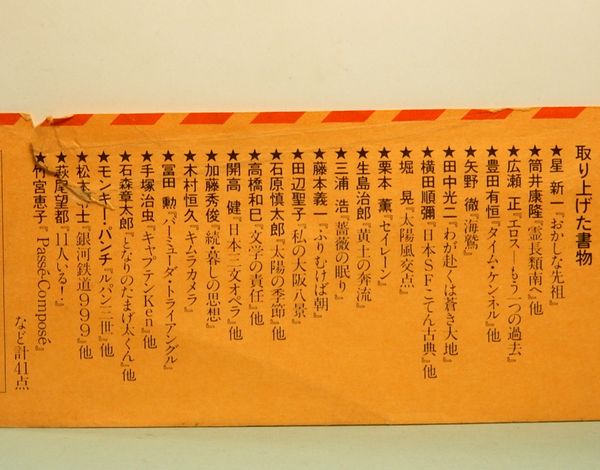 取り上げた書物
★星 新一『おかしな先祖』
★筒井康隆『霊長類南へ』他
★広瀬 正『エロス―もう一つの過去』
★豊田有恒『タイム・ケンネル』他
★矢野 徹『海鷲』
★田中光二『わが赴くは蒼き大地』
★横田順彌『日本SFこてん古典』他
★堀 晃『太陽風交点』
★栗本 薫『セイレーン』
★生島治郎『黄土の奔流』
★三浦 浩『薔薇の眠り』
★藤本義一『ふりむけば朝』
★田辺聖子『私の大阪八景』
★石原慎太郎『太陽の季節』他
★高橋和巳『文学の責任』他
★開高 健『日本三文オペラ』他
★加藤秀俊『続・暮しの思想』
★木村恒久『キムラカメラ』
★冨田 勲『バーミューダ・トライアングル』
★手塚治虫『キャプテンKen』他
★石森章太郎『となりのたまげ太くん』他
★モンキー・パンチ『ルパン三世』他
★松本零士『銀河鉄道999』他
★萩尾望都『11人いる!』
★竹宮恵子『Passé Composé』
など計41点